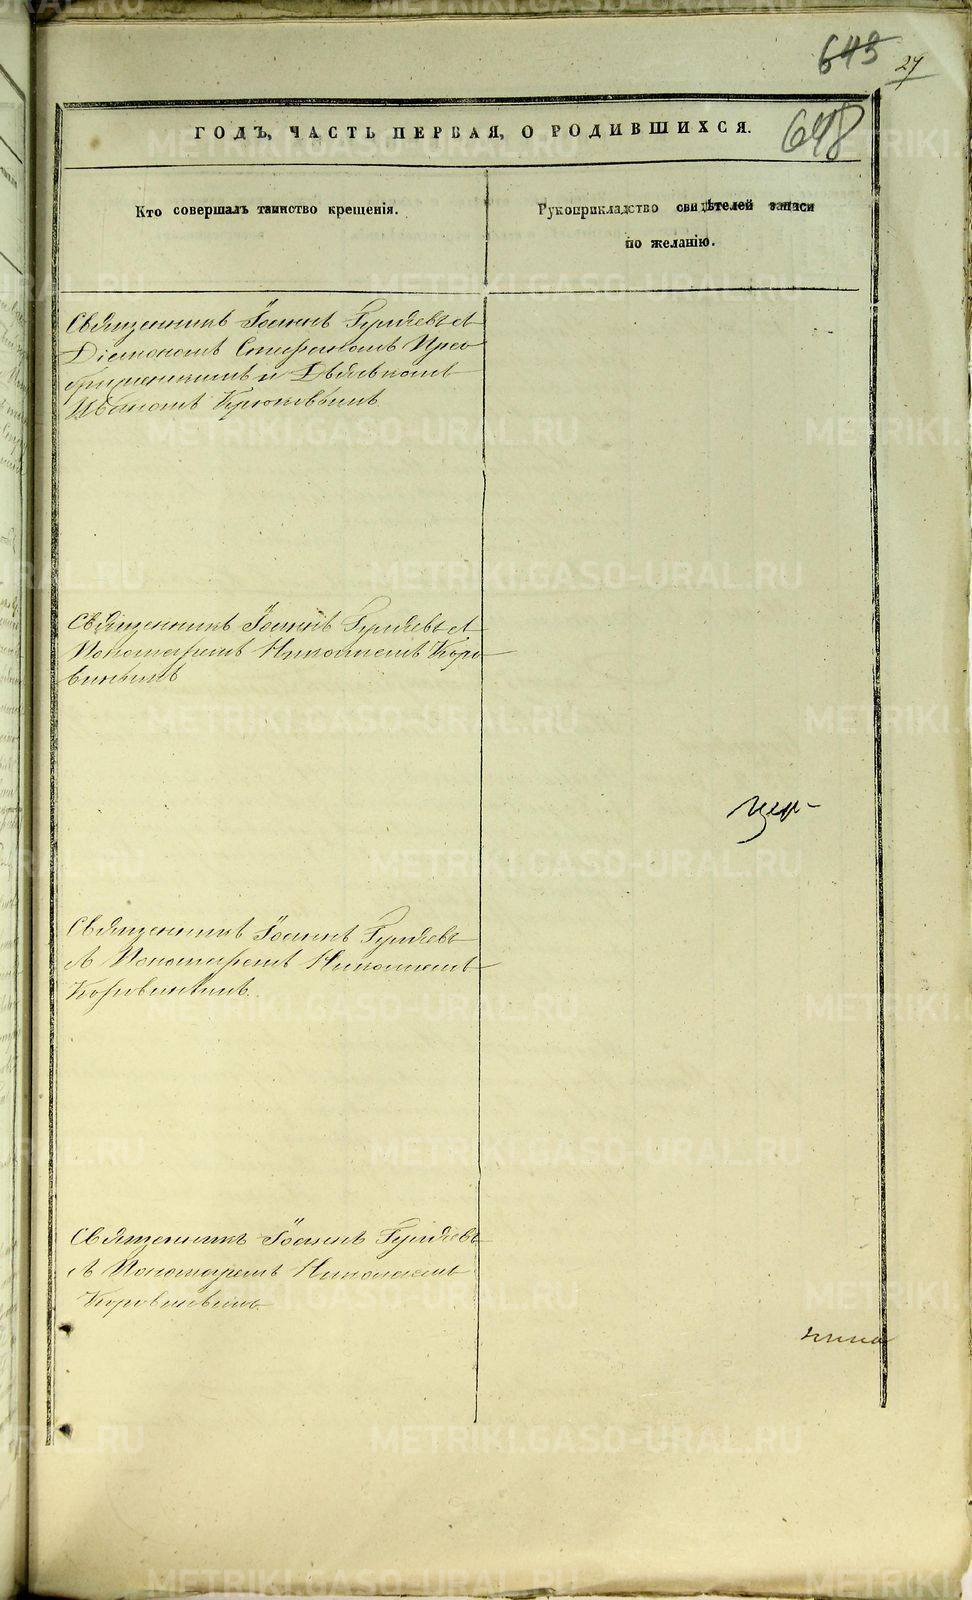 643 27
648
ГОДЪ, ЧАСТЬ ПЕРВАЯ, О РОДИВШИХСЯ.
Кто совершалъ таинство крещенія.
Рукоприкладство свидѣтелей записи
по желанію.
Священникъ Іоаннъ Гуляевъ съ
Діакономъ Стефаномъ Прео
браженскимъ и Дьячкомъ
Иваномъ Крюковымъ
Священникъ Іоаннъ Гуляевъ съ
Пономаремъ Николаемъ Коро
винымъ
Священникъ Іоаннъ Гуляевъ
съ Пономаремъ Николаемъ
Коровинымъ.
Священникъ Іоаннъ Гуляевъ
съ Пономаремъ Николаемъ
Коровинымъ
METRIKI.GASO-URAL.RU